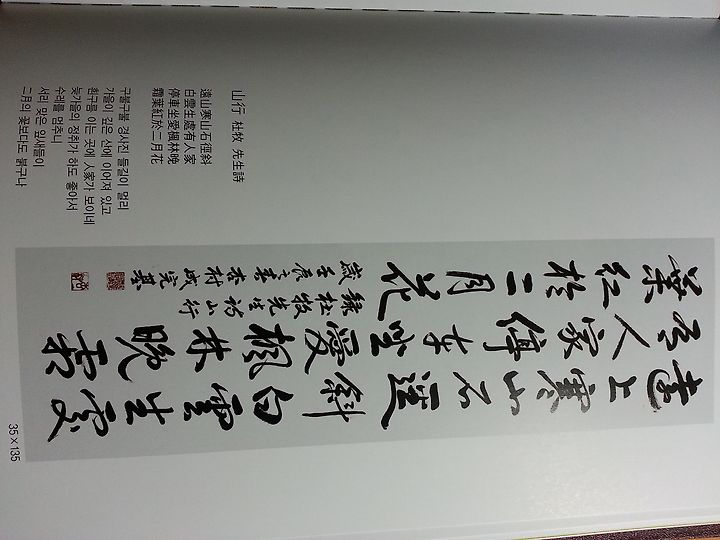 山行 杜牧 先生詩
遠山寒山石徑斜
白雲生處有人家
停車坐愛楓林晩
霜葉紅於二月花
구불구불 경사진 돌길이 멀리
가을이 깊은 산에 이어져 있고
흰구름 이는 곳에 人家가 보이네
늦가을의 정취가 하도 좋아서
수레를 멈추니
서리 맞은 잎새들이
二月의 꽃보다도 붉구나
遠上寒山石逕斜白雲生處
有人家停車坐愛楓林晩霜
葉紅於二月花
錄杜牧先生詩山行
歲壬辰之春杏村成完基
35×135